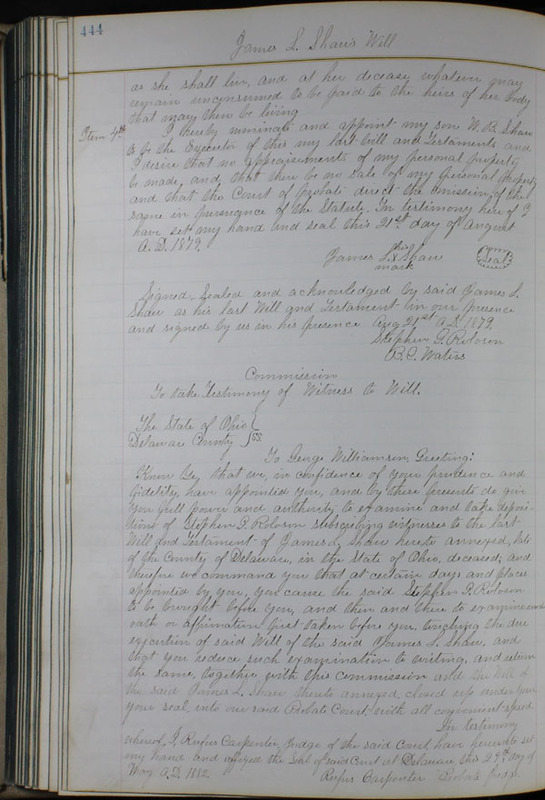 444
James L. Shaw's Will
as she shall live, and at her decease, whatever may
remain unconsumed to be paid to the heirs of her body
that may then be living
Item 4th I hereby nominate and appoint my son W. B. Shaw
to be the Executor of this my last will and Testament and
I desire that no appraisement of my personal property
be made, and that there be no sale of my personal property
and that the Court of Probate direct the omission of the
same in pursuance of the Statute. In testimony here of I
have set my hand and seal this 21st day of August
A. D. 1879.
James L. his X mark Shaw
Seal
Signed, Sealed and acknowledged by said James L.
Shaw as his last Will and Testament in our presence
and signed by us in his presence Aug 21st A.D. 1879.
Stephen P. Roloson
B. C. Waters
Commission
To take Testimony of Witness to Will.
The State of Ohio
Delaware County } SS.
To George Williamson, Greeting:
Know Ye, that we, in confidence of your prudence and
fidelity, have appointed you, and by these presents do give
you full power and authority to examine and take deposi-
tions of Stephen P. Roloson subscribing witnesses to the last
Will and Testament of James L. Shaw hereto annexed, late
of the County of Delaware, in the State of Ohio, deceased; and
therefore we command you that at certain days and places
appointed by you, you cause the said Stephen P. Roloson
to be brought before you, and then and there to examine on
oath or affirmation first taken before you, touching the due
execution of said Will of the said James L. Shaw, and
that you reduce such examination to writing, and return
the same, together with this commission and the Will of
the said James L. Shaw hereto annexed, closed up under
your seal, into our said Probate Court, with all convenient speed.
In testimony
whereof, I, Rufus Carpenter, Judge of the said Court, have hereunto set
my hand and affixed the Seal of said Court at Delaware, this 29th day of
May A.D. 1882.
Rufus Carpenter Probate Judge.